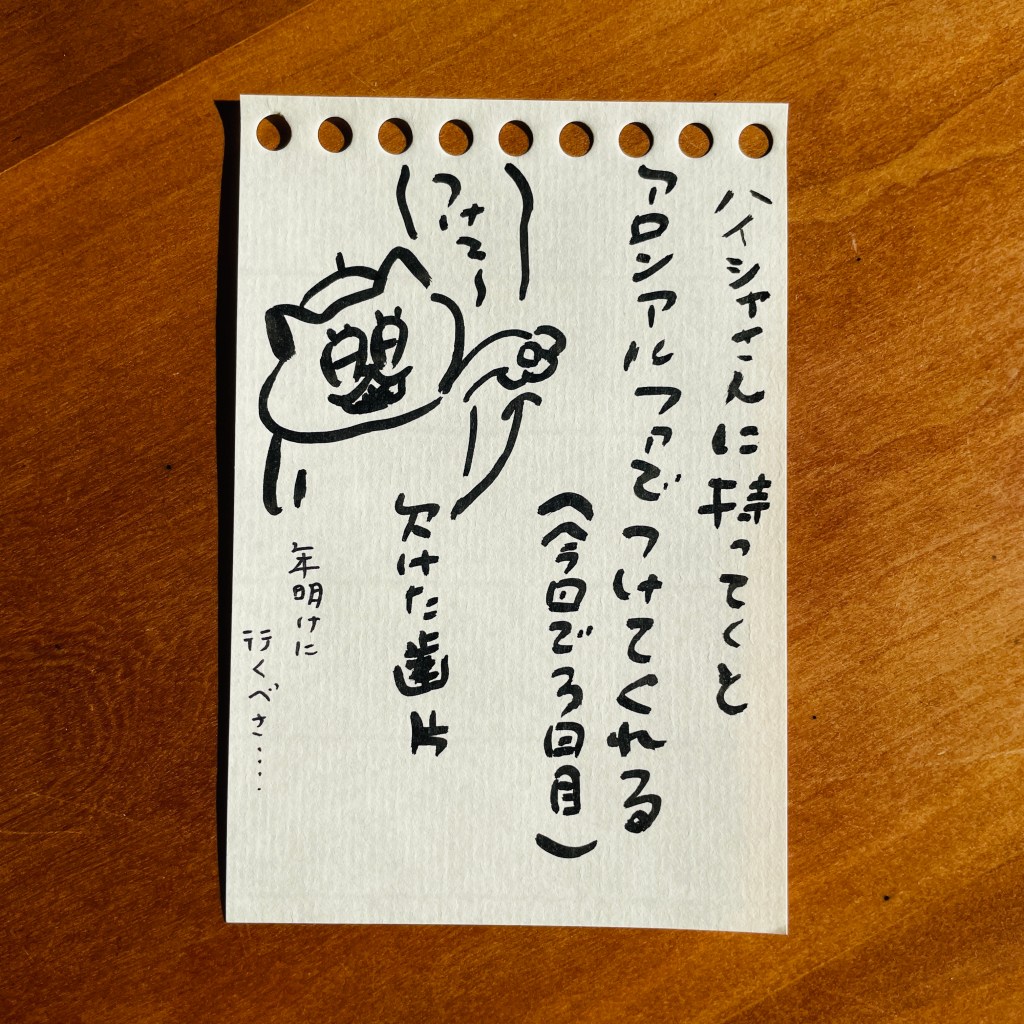 ハイシャさんに持ってくと
アロンアルファでつけてくれる
(今回で3回目)
つけて〜
欠けた歯片
年明けに
行くべさ....